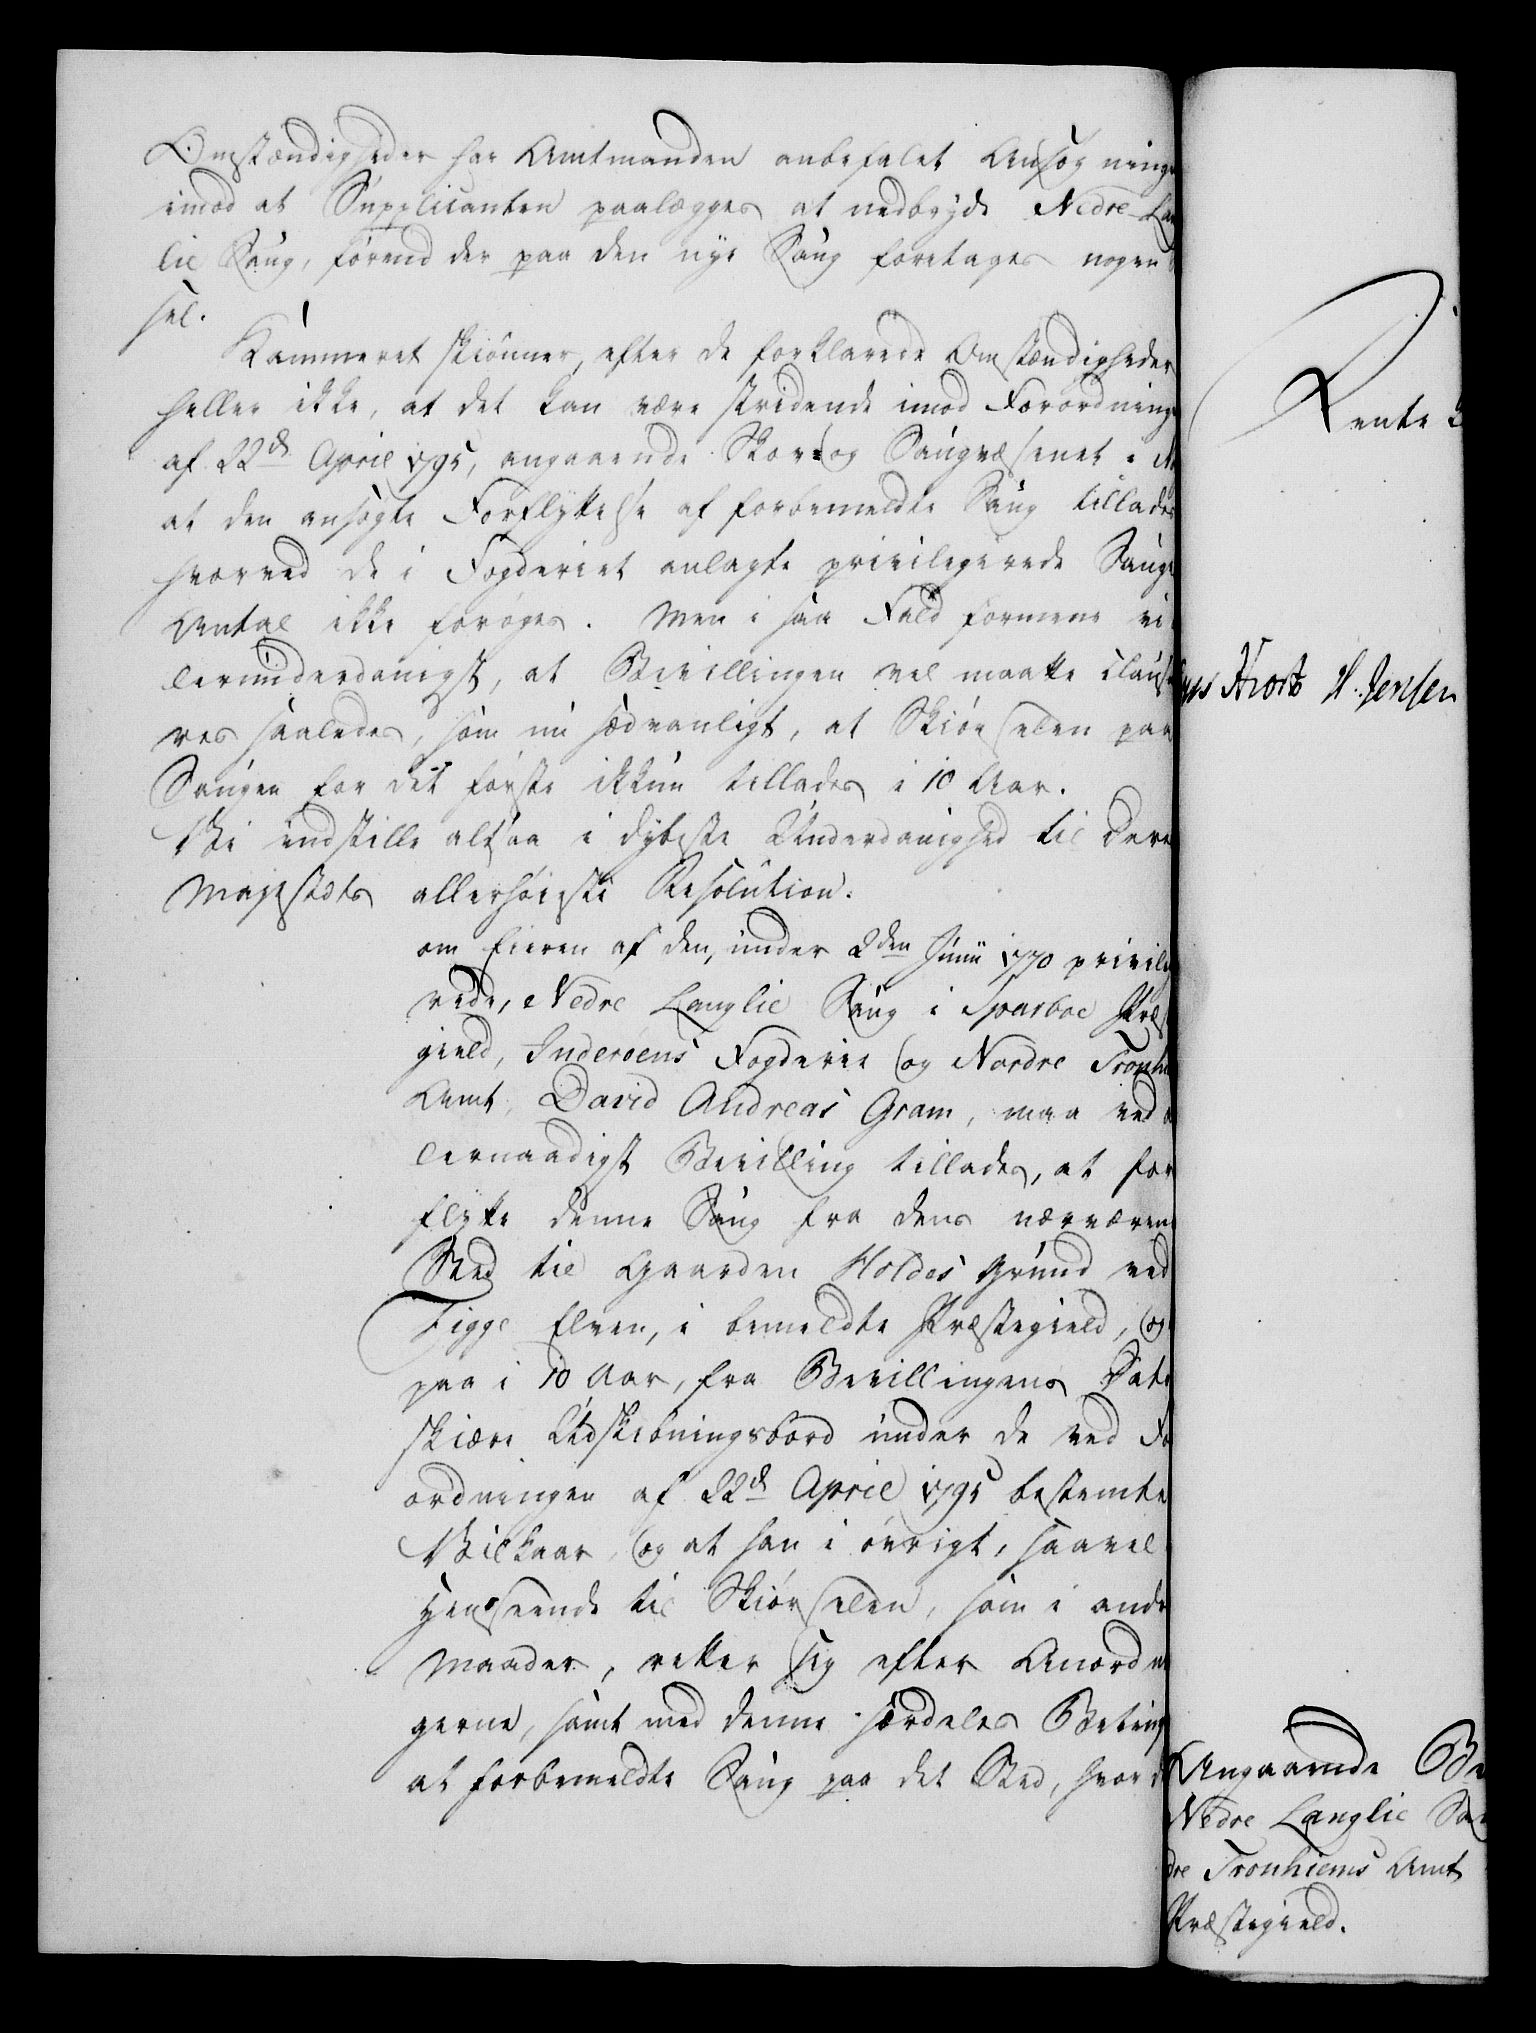 Omstændigheder har Amtmanden anbefalet Ansøgning
imod at Supplicanten paalægges at nedbryde Nedre Lan
lie Saug, førend der paa den nye Saug foretages nogen
sel.
Kammeret skiønner, efter de forklarede Omstændigheder
heller ikke, at det kan være stridende imod Forordning
af 22d April 1795, angaaende Skov og Saugvæsenet i
at den ansøgte Forflyttelse af forbemeldte Saug tillades
hvorved de i Fogderiet anlagte privilegerede Sauge
Antal ikke forøges. Men i saa Fald formene vi
lerunderdanigst, at Bevillingen vel maatte clausu
res saaledes, som nu sædvanligt, at Skiørselen paa
Saugen for det første ikkun tillades i 10 Aar.
Vi indstille altsaa i dybeste Underdanighed til Deres
Majestæts allerhøieste Resolution.
om Eieren af den, under 2den Junii 1770 privileg
rede, Nedre Langlie Saug i Sparboe Præ
gield, Inderøens Fogderie og Nordre Tronh
Amt, David Andreas Gram, maa ved
lernaadigst Bevilling tillades, at for
flytte denne Saug fra dens nærværen
Sted til Gaarden Holdes Grund ved
Figge Elven, i bemeldte Præstegield, og
paa i 10 Aar, fra Bevillingens Dato
skiære Udskibningsbord under de ved Fo
ordningen af 22d April 1795 bestemte
Vilkaar, og at han i øvrigt, saavel
Henseende til Skiørselen, som i andre
Maader, retter sig efter Anordn
gerne, samt med denne særdeles Beting
at forbemeldte Saug paa det Sted, hvor d
Rente
Hiort H. Jensen
Angaaende Be
Nedre Langlie Sau
dre Tronhiems Amt
Præstegield.